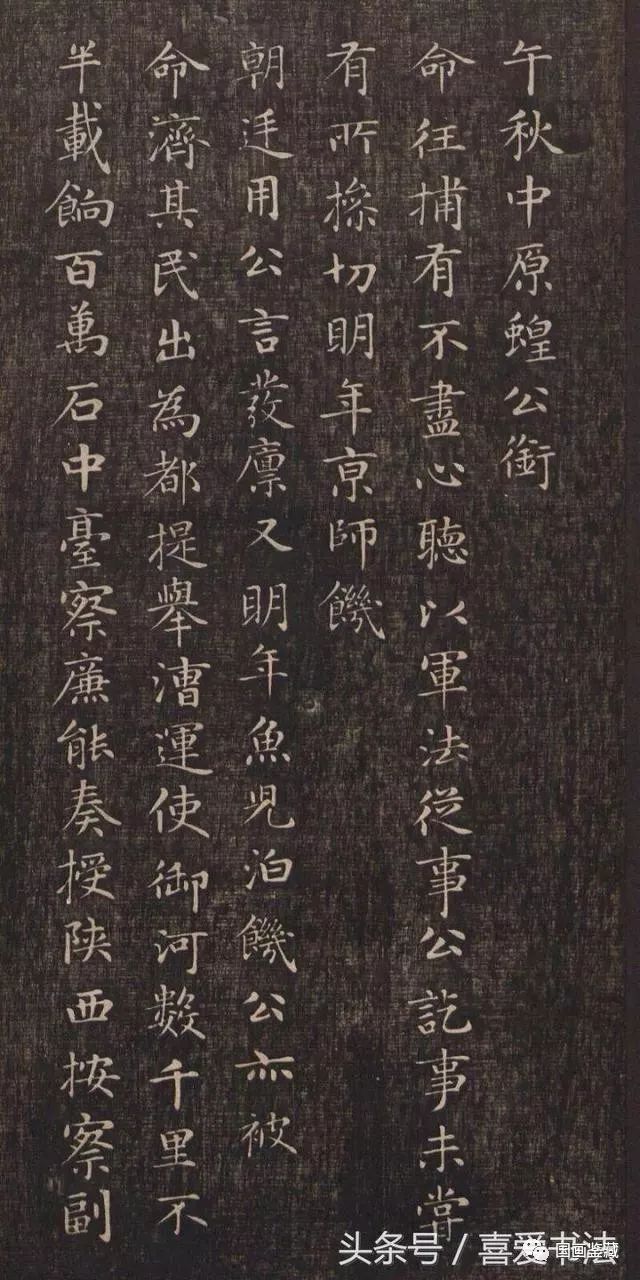 午秋中原蝗公銜
命往捕有不盡心聽以軍法從事公訖事未嘗
有所摻切明年京師饑
朝廷用公言發廪又明年魚児泊饑公亦被
命濟其民出為都提舉漕運使御河數千里不
半載餉百萬石中臺察廉能奏授陝西按察副
头条号 / 喜爱书法
国画鉴藏